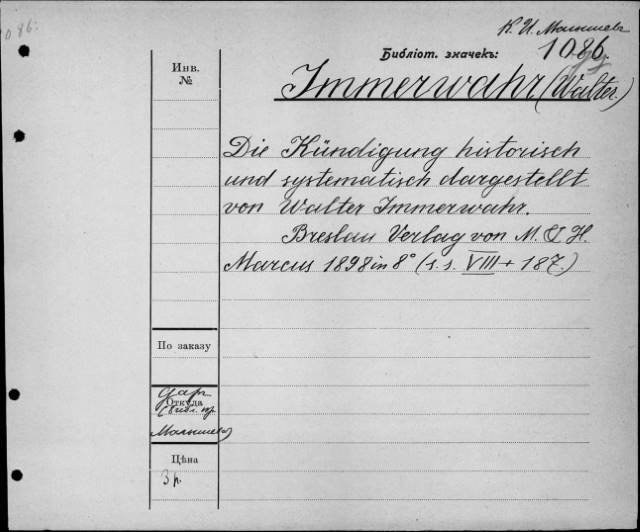 1086.
К. И. Малышевъ
Библіот. значекъ: 1086
Immerwahr. (Walter.)
Инв.
№
Die Kündigung historisch
und systematisch dargestellt
von Walter Immerwahr.
Breslau Verlag von M. & H.
Marcus 1898 in 8° (s. s. VIII + 187.)
По заказу
Откуда
дар.
(библ. пр.
Малышева)
Цѣна
3 р.